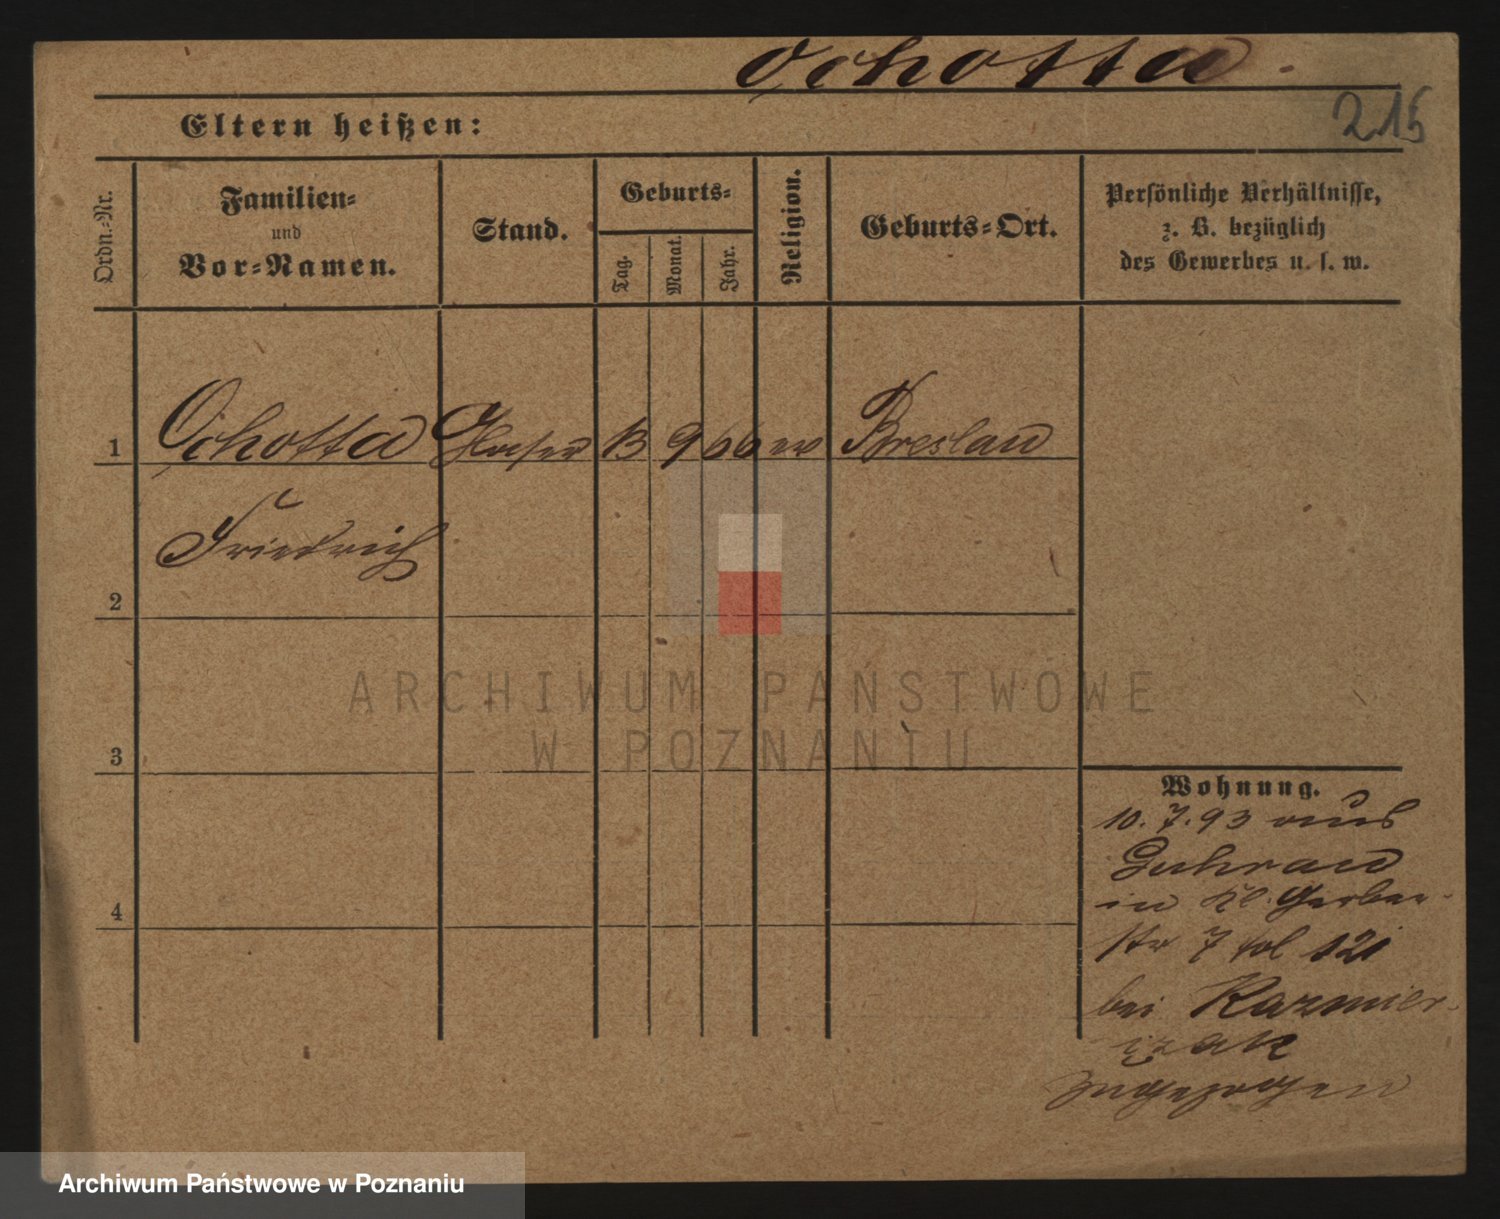 Ochotta.
215
Eltern heißen:
Ordn.-Nr.
Familien-
und
Vor-Namen.
Stand.
Geburts-
Tag.
Monat.
Jahr.
Religion.
Geburts-Ort.
Persönliche Verhältnisse,
z. B. bezüglich
des Gewerbes u. s. w.
1 Ochotta Glaser 13 9 66 ev Breslau
Friedrich
2
3
4
Wohnung.
10. 7. 93 aus
Guhrau
in Kl. Gerber-
str 7 fol 121
bei Kazmier-
czak
zugezogen
ARCHIWUM PAŃSTWOWE
W POZNANIU
Archiwum Państwowe w Poznaniu